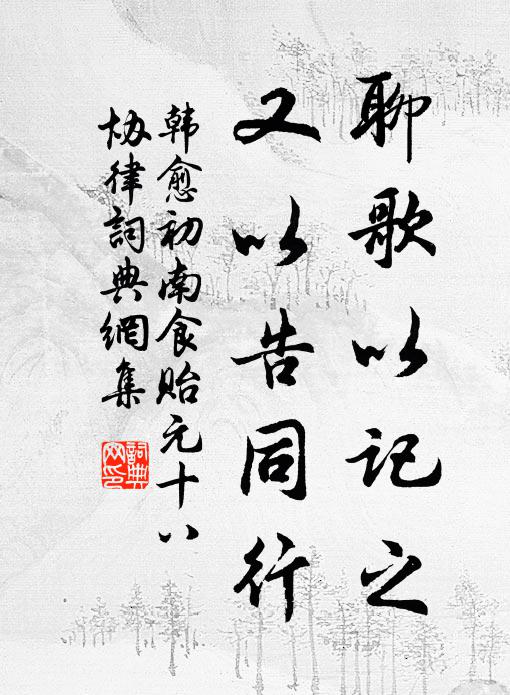 聊歌以记之
又以告同行
韩愈初南食贻元十八
协律詞典網集
詞典
网印